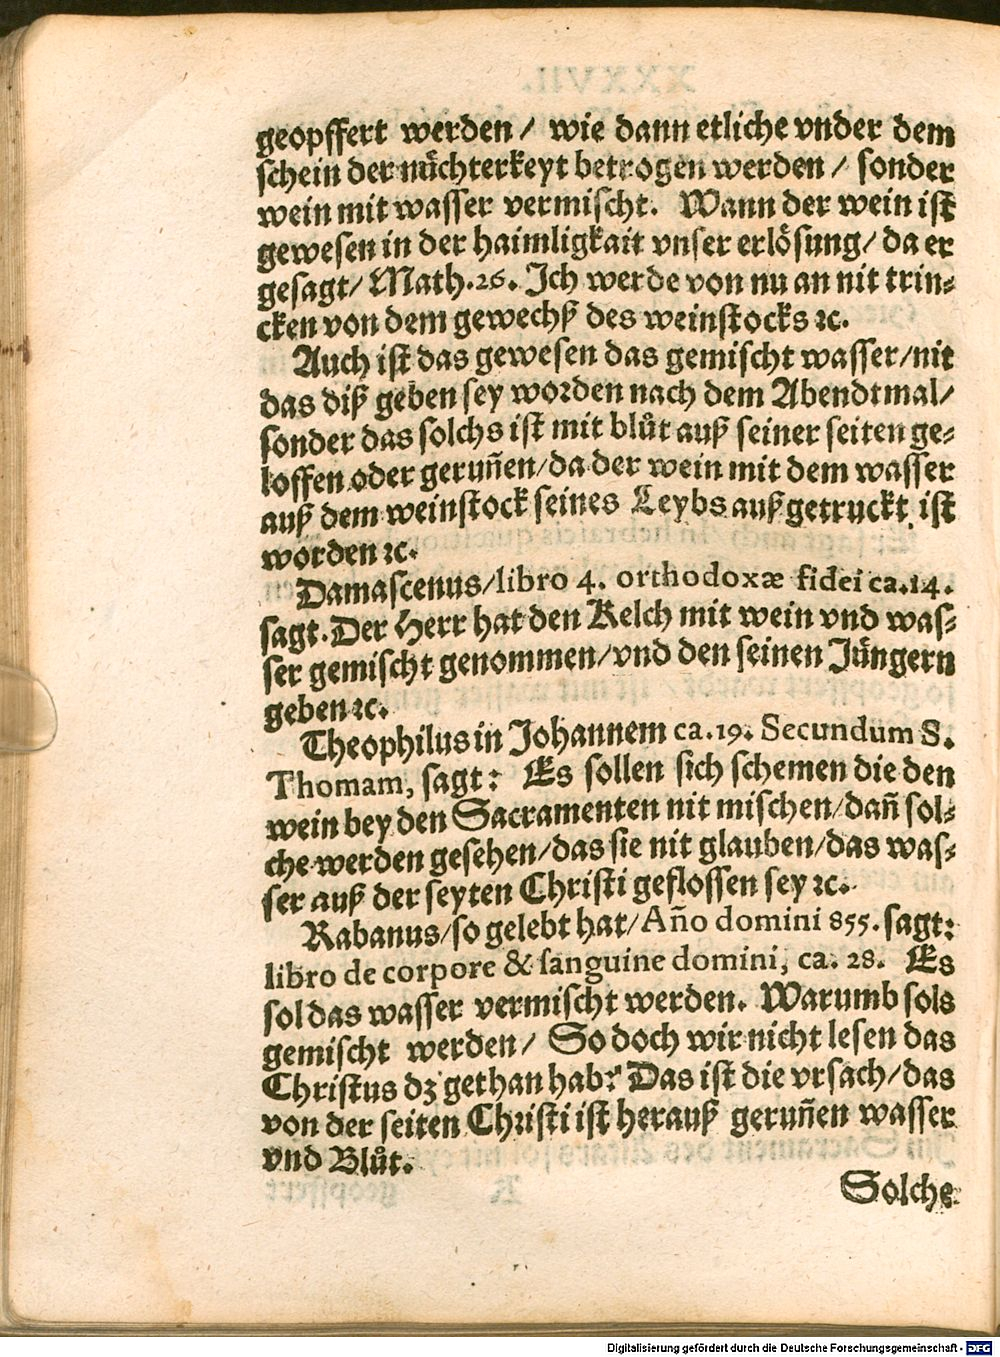 geopffert werden / wie dann etliche vnder dem
schein der nuͤchterkeyt betrogen werden / sonder
wein mit wasser vermischt. Wann der wein ist
gewesen in der haimligkait vnser erloͤsung/ da er
gesagt/ Math.26. Ich werde von nu an nit trin⸗
cken von dem gewechß des weinstocks ꝛc.
Auch ist das gewesen das gemischt wasser/nit
das diß geben sey worden nach dem Abendtmal/
sonder das solchs ist mit bluͦt auß seiner seiten ge⸗
loffen oder geruñen/da der wein mit dem wasser
auß dem weinstock seines Leybs auß getruckt ist
worden ꝛc.
Damascenus/libro 4. orthodoxæ fidei ca.14.
sagt. Der Herr hat den Kelch mit wein vnd was⸗
ser gemischt genommen/vnd den seinen Juͤngern
geben ꝛc.
Theophilus in Johannem ca.19. Secundum S.
Thomam, sagt: Es sollen sich schemen die den
wein bey den Sacramenten nit mischen/dañ sol⸗
che werden gesehen/das sie nit glauben/das was⸗
ser auß der seyten Christi geflossen sey ꝛc.
Rabanus/so gelebt hat/Año domini 855. sagt:
libro de corpore & sanguine domini, ca. 28. Es
sol das wasser vermischt werden. Warumb sols
gemischt werden/ So doch wir nicht lesen das
Christus dz gethan hab? Das ist die vrsach/das
von der seiten Christi ist herauß geruñen wasser
vnd Bluͦt.
Solche
Digitalisierung gefördert durch die Deutsche Forschungsgemeinschaft - DFG